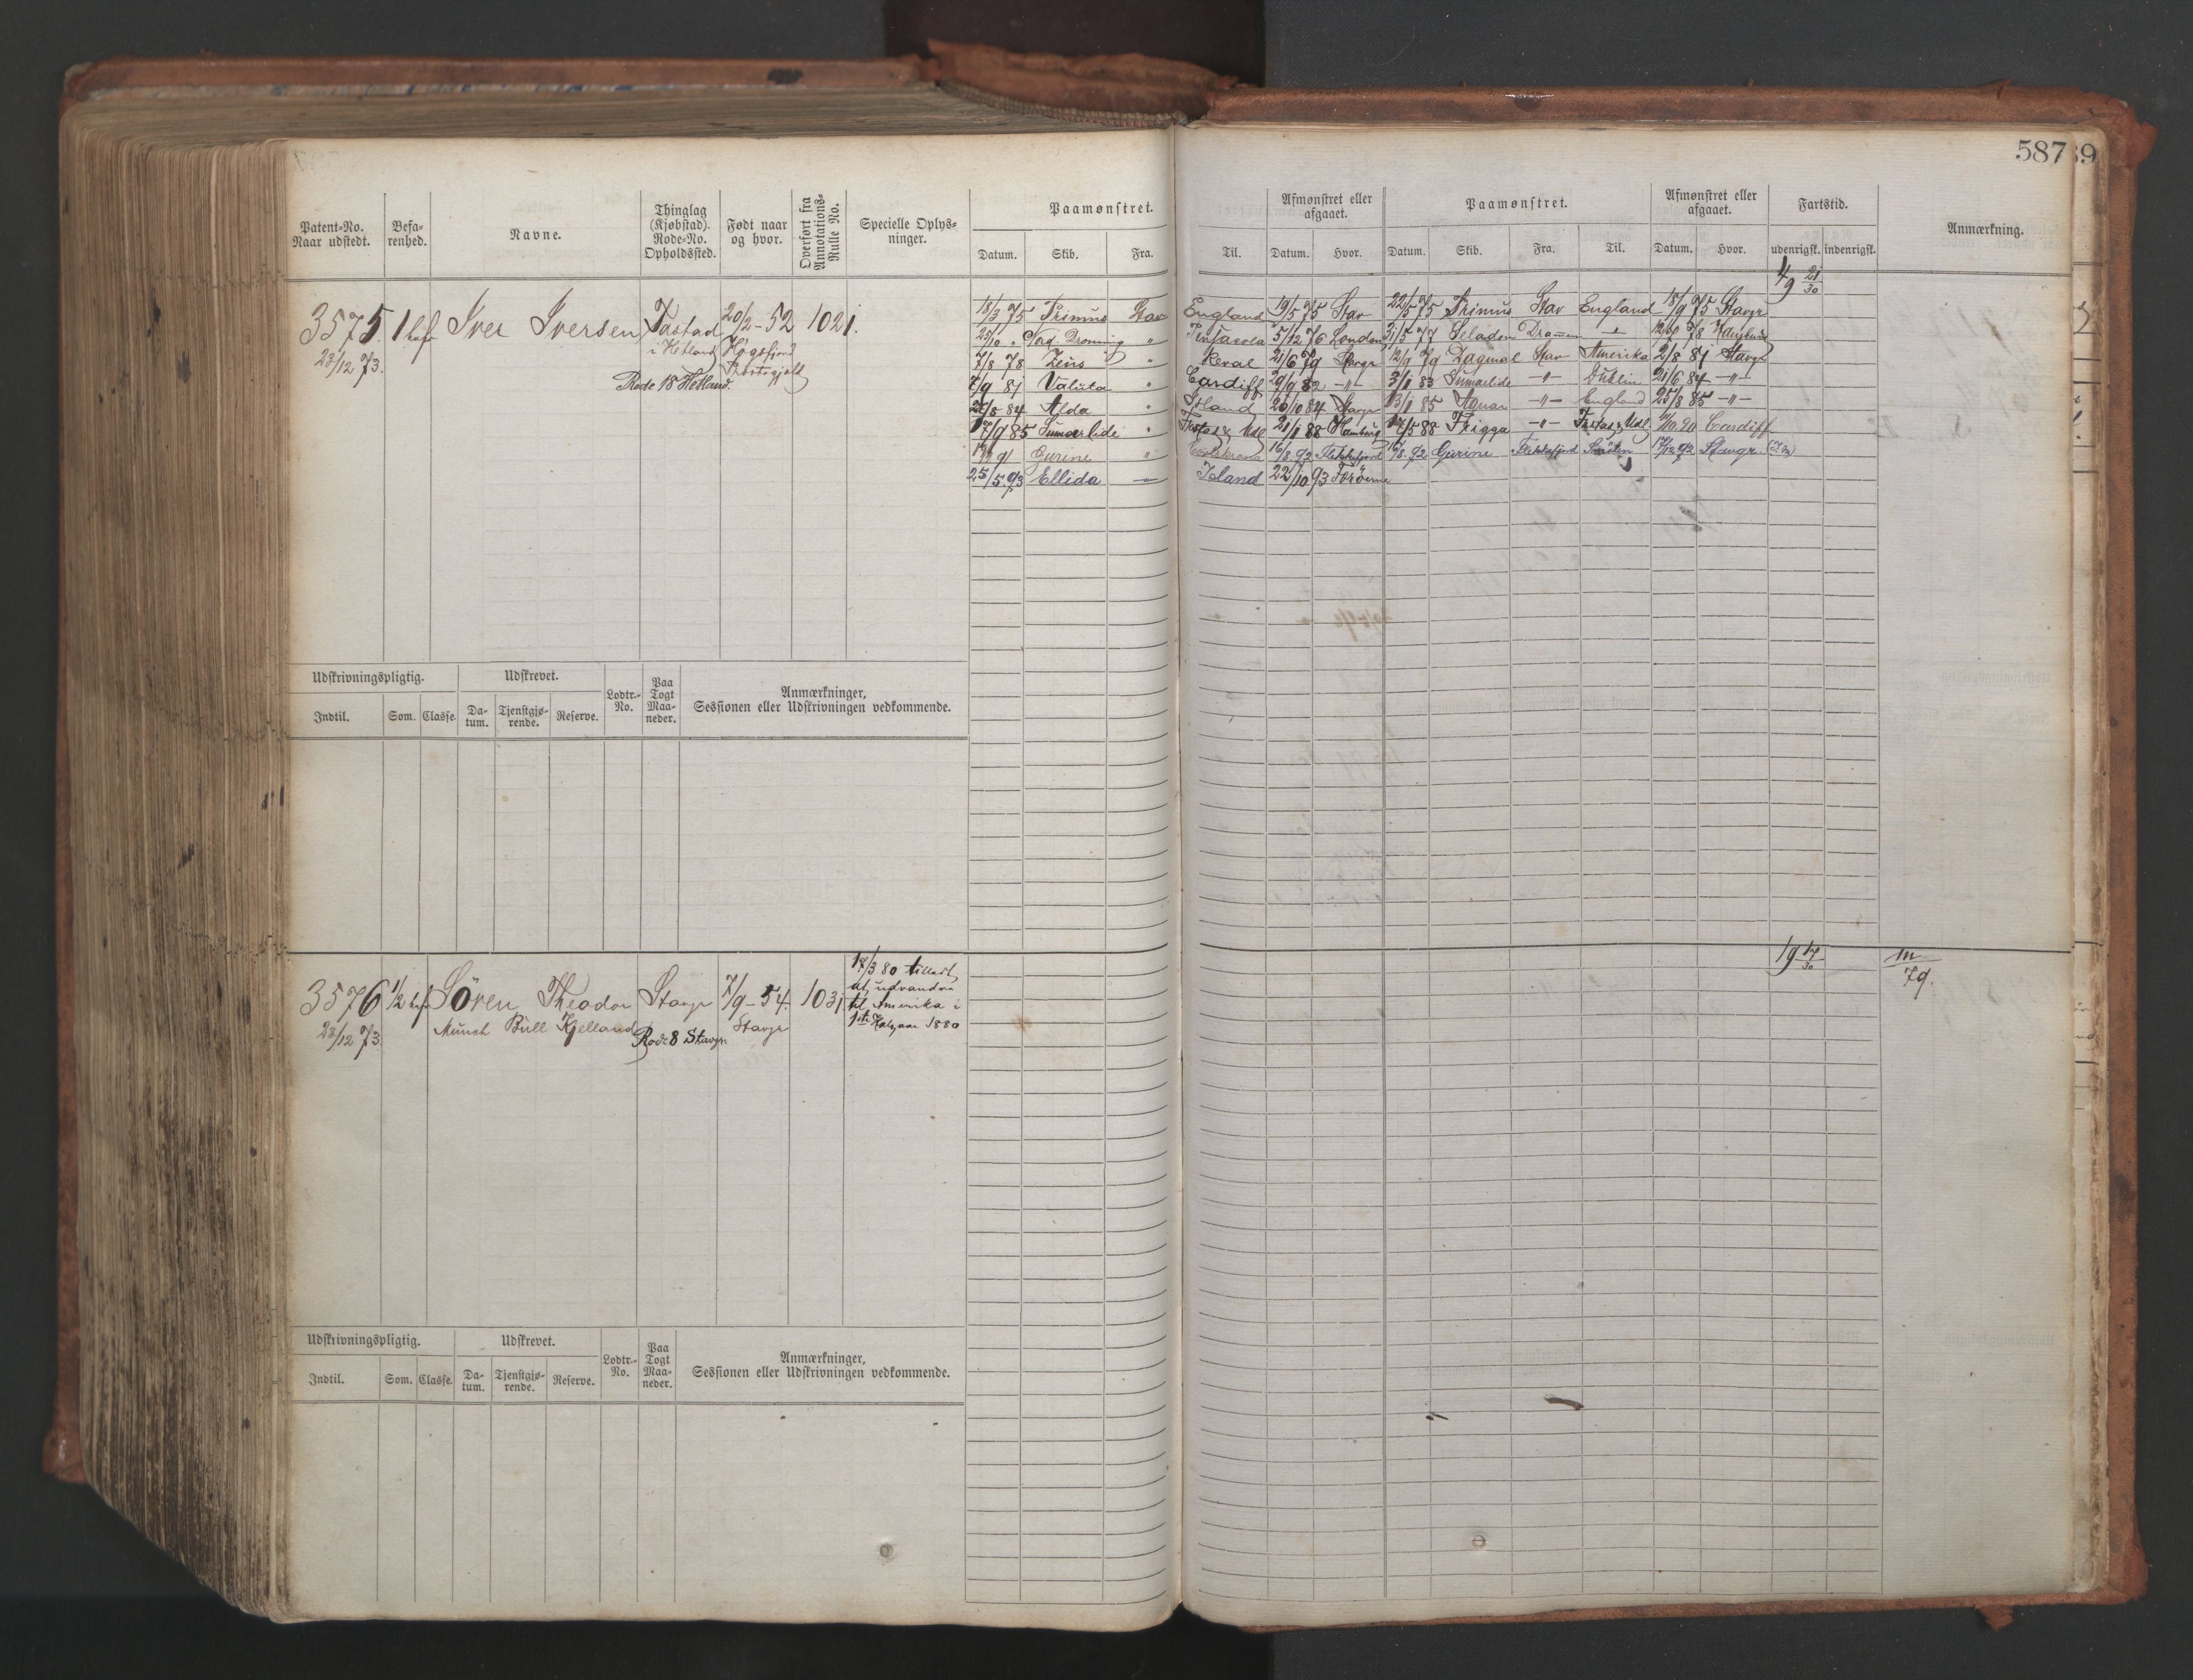 587
Patent-No. Naar udstedt.
Befa-renhed.
Navne.
Thinglag (Kjøbstad). Rode-No. Opholdssted.
Født naar og hvor.
Overført fra Annotations-Rulle No.
Specielle Oplys-ninger.
Paamønstret.
Datum. Skib. Fra. Til.
Afmønstret eller afgaaet.
Datum. Hvor.
Paamønstret.
Datum. Skib. Fra. Til.
Afmønstret eller afgaaet.
Datum. Hvor.
Fartstid.
udenrigsk. indenrigsk.
Anmærkning.
3575. 1 bef Iver Iversen Tastad 20/2-52 1021.
23/12 73. i Hetland Høgsfjord
Rode 18 Hetland. Præstegjeld
4/9 21/30
18/3 75 Primus Stav England 19/5 75 Stav 22/5 75 Primus Stav England 18/9 75 Stavgr
25/10 " Norg. Dronning " Pensacola 5/12 76 London 31/5 77 Seladon Drammen " 78 Hamburg
7/8 78 Zeus " Reval 21/6 79 Stavgr 12/9 79 Dagmar Stav Amerika 2/8 81 Stavgr
7/9 81 Valuta " Cardiff 29/9 82 -"- 3/1 83 Sumarlide -"- Dublin 21/6 84 -"-
84 Alda " Island 20/10 84 Stavgr 13/1 85 Aquar -"- England 25/8 85 -"-
17/9 85 Sumarlide " Tristas & Udl 21/1 88 Hamburg 88 Frigga -"- Tristas & Udl 90 Cardiff
91 Gurine " 92 Flekkefjord 92 Gurine Flekkefjord 92 Stavgr
25/5 93 Ellida -"- Island 22/10 93 Færøerne
Udskrivningspligtig.
Indtil. Som. Classe.
Udskrevet.
Da-tum. Tjenstgjø-rende. Reserve.
Lodtr.-No.
Paa Togt Maa-neder.
Anmærkninger,
Sessionen eller Udskrivningen vedkommende.
3576 1/2 bef Sören Theodor Stavgr 7/9-54. 1031
23/12 73. Munch Bull Kjelland Rode 8 Stavgr Stavgr
18/3 80 tilladt
at udvandre
til Amerika i
1ste Halvaar 1880
19 17/30
m/79.
Udskrivningspligtig.
Indtil. Som. Classe.
Udskrevet.
Da-tum. Tjenstgjø-rende. Reserve.
Lodtr.-No.
Paa Togt Maa-neder.
Anmærkninger,
Sessionen eller Udskrivningen vedkommende.